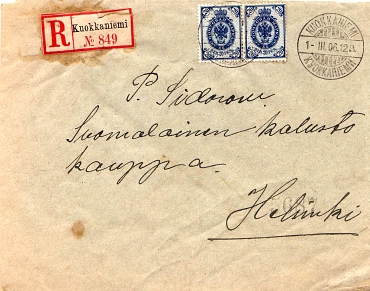 R Kuokkaniemi
№ 849
NUOKKANIEMI
1-III.06.12
KUOKKANIEMI
P. Sidorow.
Suomalainen kalusto
kauppa.
637
Helsinki